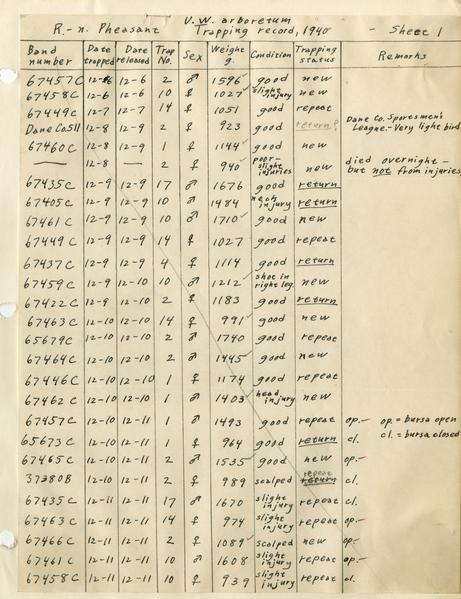 U. W. arboretum
R.-n. Pheasant Trapping record, 1940 - Sheet 1
Band number Date trapped Date released Trap No. Sex Weight g. Condition Trapping status Remarks
67457C 12-6 12-6 2 ♂ 1596 good new
67458C 12-6 12-6 10 ♀ 1027 slight injury new
67449C 12-7 12-7 14 ♀ 1051 good repeat
Dane Co 511 12-8 12-9 2 ♀ 923 good return? Dane Co. Sportsmen's League.-Very light bird
67460C 12-8 12-9 1 ♀ 1144 good new
— 12-8 2 ♀ 940 poor-slight injuries new died overnight - but not from injuries
67435C 12-9 12-9 17 ♂ 1676 good return
67405C 12-9 12-9 10 ♂ 1484 neck injury return
67461C 12-9 12-9 10 ♂ 1710 good new
67449C 12-9 12-9 14 ♀ 1027 good repeat
67437C 12-9 12-9 4 ♀ 1114 good return
67459C 12-9 12-10 10 ♂ 1212 shot in right leg. new
67422C 12-9 12-10 2 ♀ 1183 good return
67463C 12-10 12-10 14 ♀ 991 good new
65679C 12-10 12-10 2 ♂ 1740 good repeat
67464C 12-10 12-10 2 ♂ 1445 good new
67446C 12-10 12-10 1 ♀ 1174 good repeat
67462C 12-10 12-10 1 ♂ 1403 head injury new
67457C 12-10 12-11 1 ♂ 1493 good repeat op.- op. = bursa open
65673C 12-10 12-11 1 ♀ 964 good return cl. cl. = bursa closed
67465C 12-10 12-11 2 ♂ 1535 good new op.-
37380B 12-10 12-11 2 ♀ 989 scalped repeat return cl.
67435C 12-11 12-11 17 ♂ 1670 slight injury repeat cl.
67463C 12-11 12-11 14 ♀ 974 slight injury repeat op.-
67466C 12-11 12-11 2 ♀ 1089 scalped new op.-
67461C 12-11 12-11 10 ♂ 1608 slight injury repeat op.-
67458C 12-11 12-11 10 ♀ 939 slight injury repeat cl.